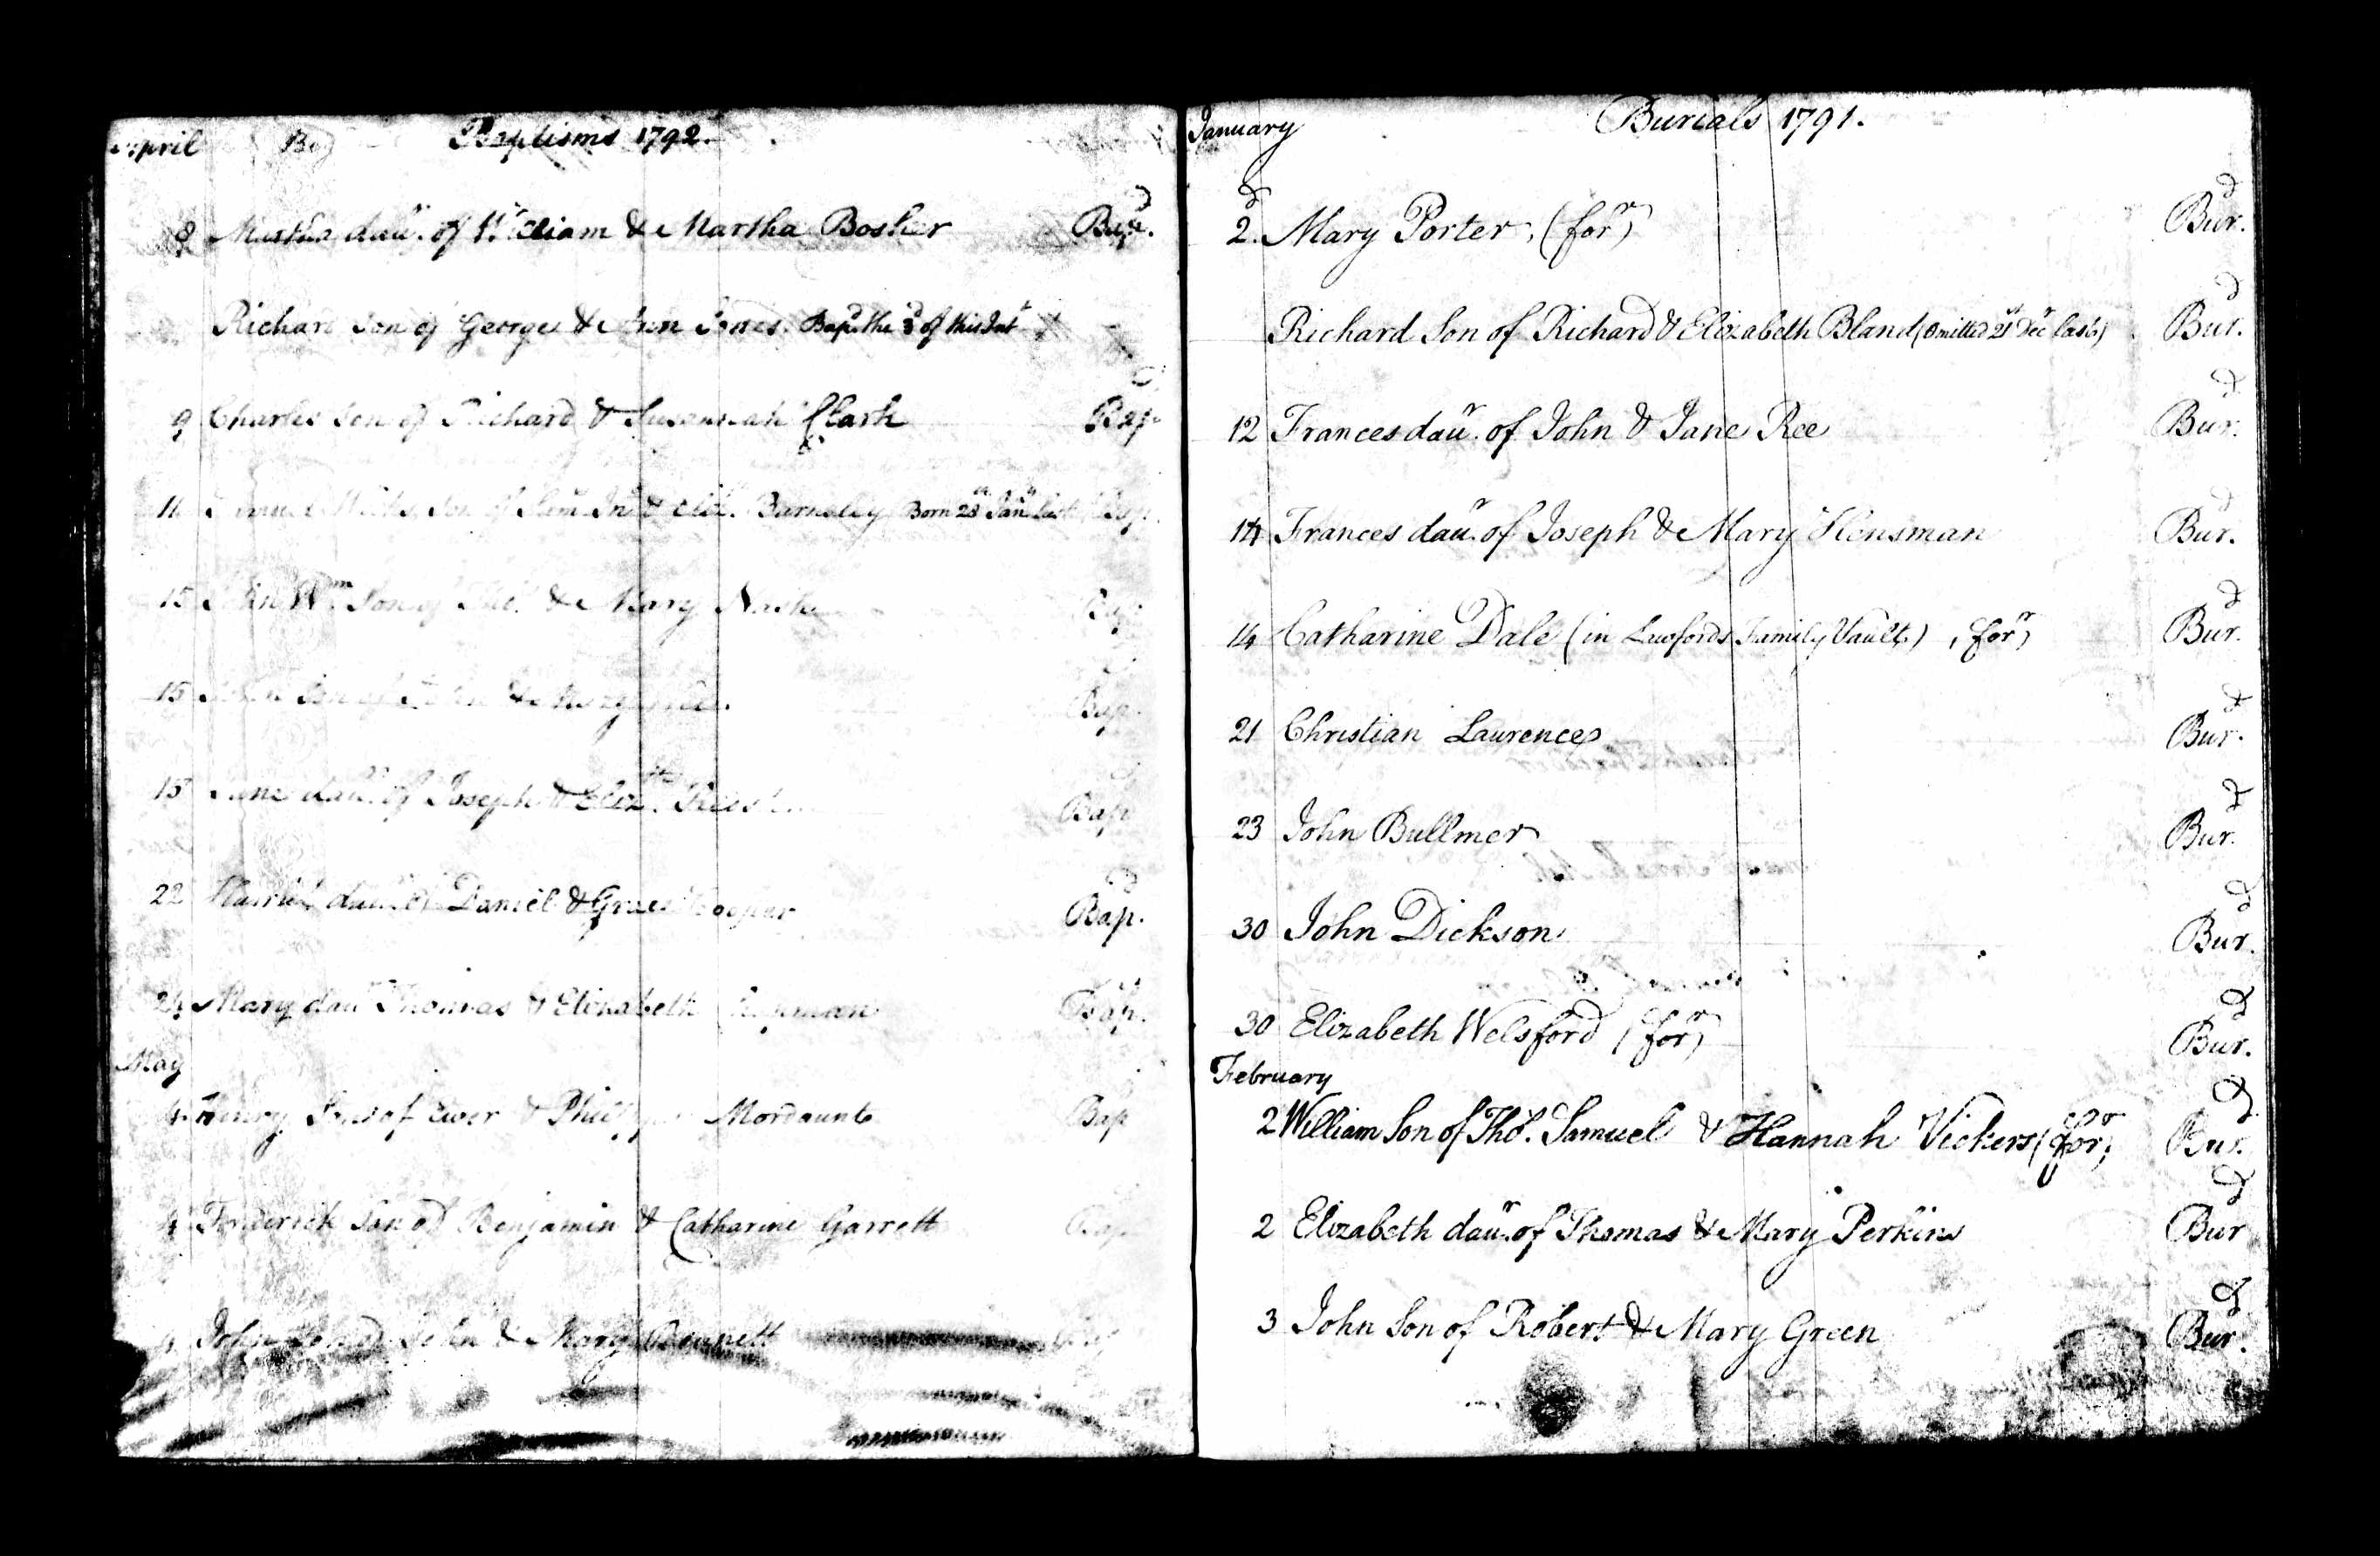 April Baptisms 1792.
8 Martha dau.r of William & Martha Bosher Bap.d
Richard Son of George & Ann Jones. Bap.d the 8 of this Inst
9 Charles Son of Richard & Susannah Clark Bap.d
11 Son of Sam.l Jn.o & Eliz. Barnsley Born 28th Jan.y last Bap.
15 John Wm Son of Tho.s & Mary Nash Bap.
15 John Son of John & Mary Bap.
15 Jane dau.r of Joseph & Eliz.th Bap.
22 Harriet dau.r of Daniel & Grace Cooper Bap.d
24 Mary dau.r Thomas & Elizabeth Bap.
May
4 Henry Son of & Mordaunt Bap
4 Frederick Son of Benjamin & Catharine Garrett Bap
John Son of John & Mary Bennett
January Burials 1791.
2.d Mary Porter, (for.r) Bur.d
Richard Son of Richard & Elizabeth Bland (Omitted 21st Dec.r last) Bur.d
12 Frances dau.r of John & Jane Ree Bur.d
14 Frances dau.r of Joseph & Mary Hensman Bur.d
14 Catharine Dale (in Luofords Family Vault) (for.r) Bur.d
21 Christian Laurence Bur.d
23 John Bullmer Bur.d
30 John Dickson Bur.d
30 Elizabeth Welsford (for.r) Bur.d
February
2 William Son of Tho.s Samuel & Hannah Vickers (for.r) Bur.d
2 Elizabeth dau.r of Thomas & Mary Perkins Bur.d
3 John Son of Robert & Mary Green Bur.d